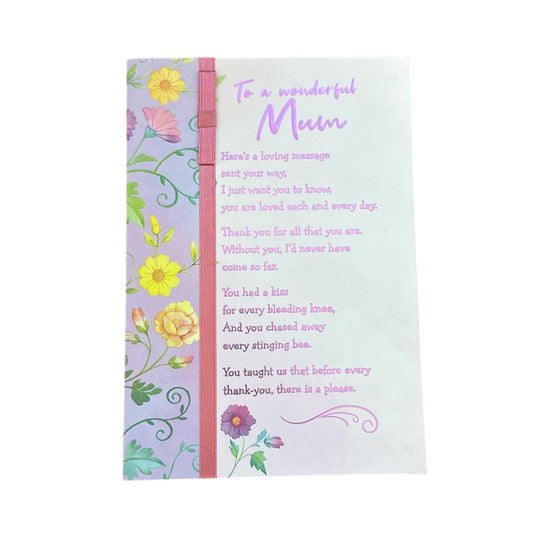 To a wonderful
Mum
Here's a loving message
sent your way,
I just want you to know,
you are loved each and every day.
Thank you for all that you are.
Without you, I'd never have
come so far.
You had a kiss
for every bleeding knee,
And you chased away
every stinging bee.
You taught us that before every
thank-you, there is a please.